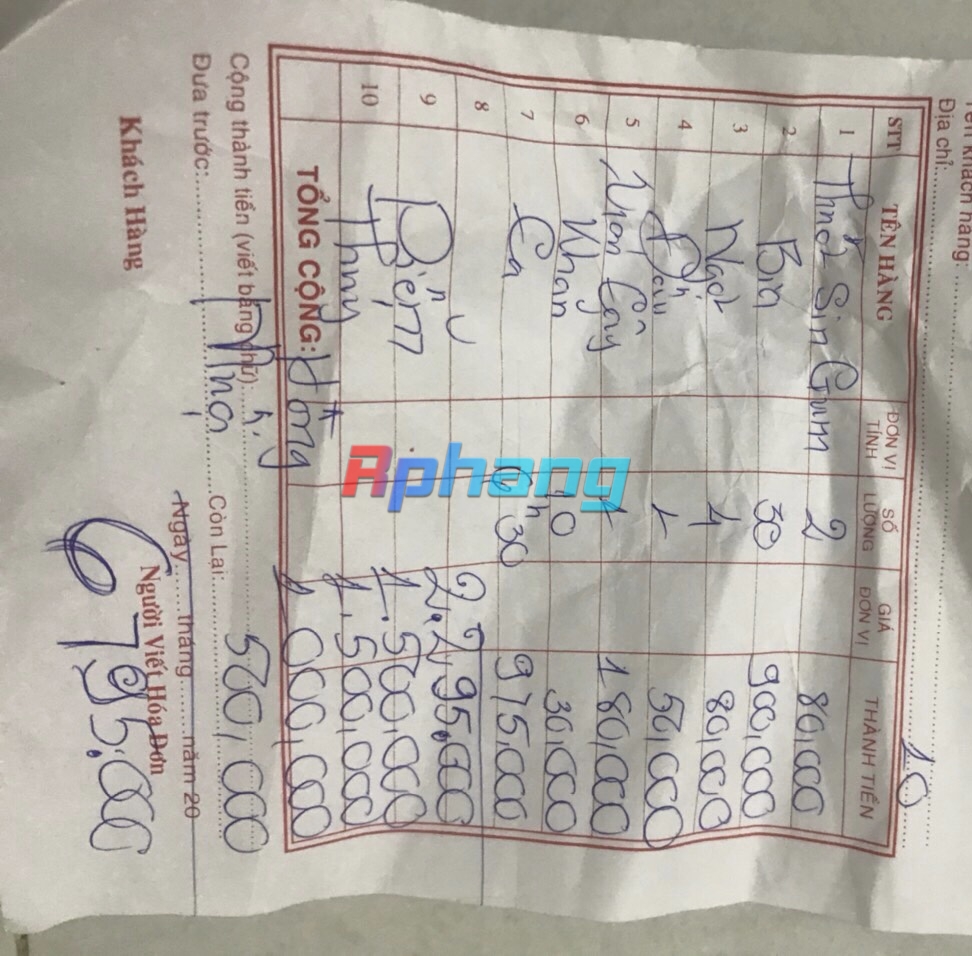 Tên khách hàng:
Địa chỉ: 10
STT TÊN HÀNG ĐƠN VỊ TÍNH SỐ LƯỢNG GIÁ ĐƠN VỊ THÀNH TIỀN
1 Thhớt Sin Gum 2 80,000
2 Bia 30 900,000
3 Ngọt 1 80,000
4 Dầu 1 50,000
5 Nhan Cây 1 180,000
6 Nhan 10 30,000
7 Cá 30 975,000
8 2,295,000
9 Điện 1.500,000
10 Thuy 1,500,000
TỔNG CỘNG: Đông 1,000,000
Cộng thành tiền (viết bằng chữ):
Đưa trước: Còn Lại: 500,000
Ngày tháng năm 20
Khách Hàng Người Viết Hóa Đơn
6795.000
Rphang